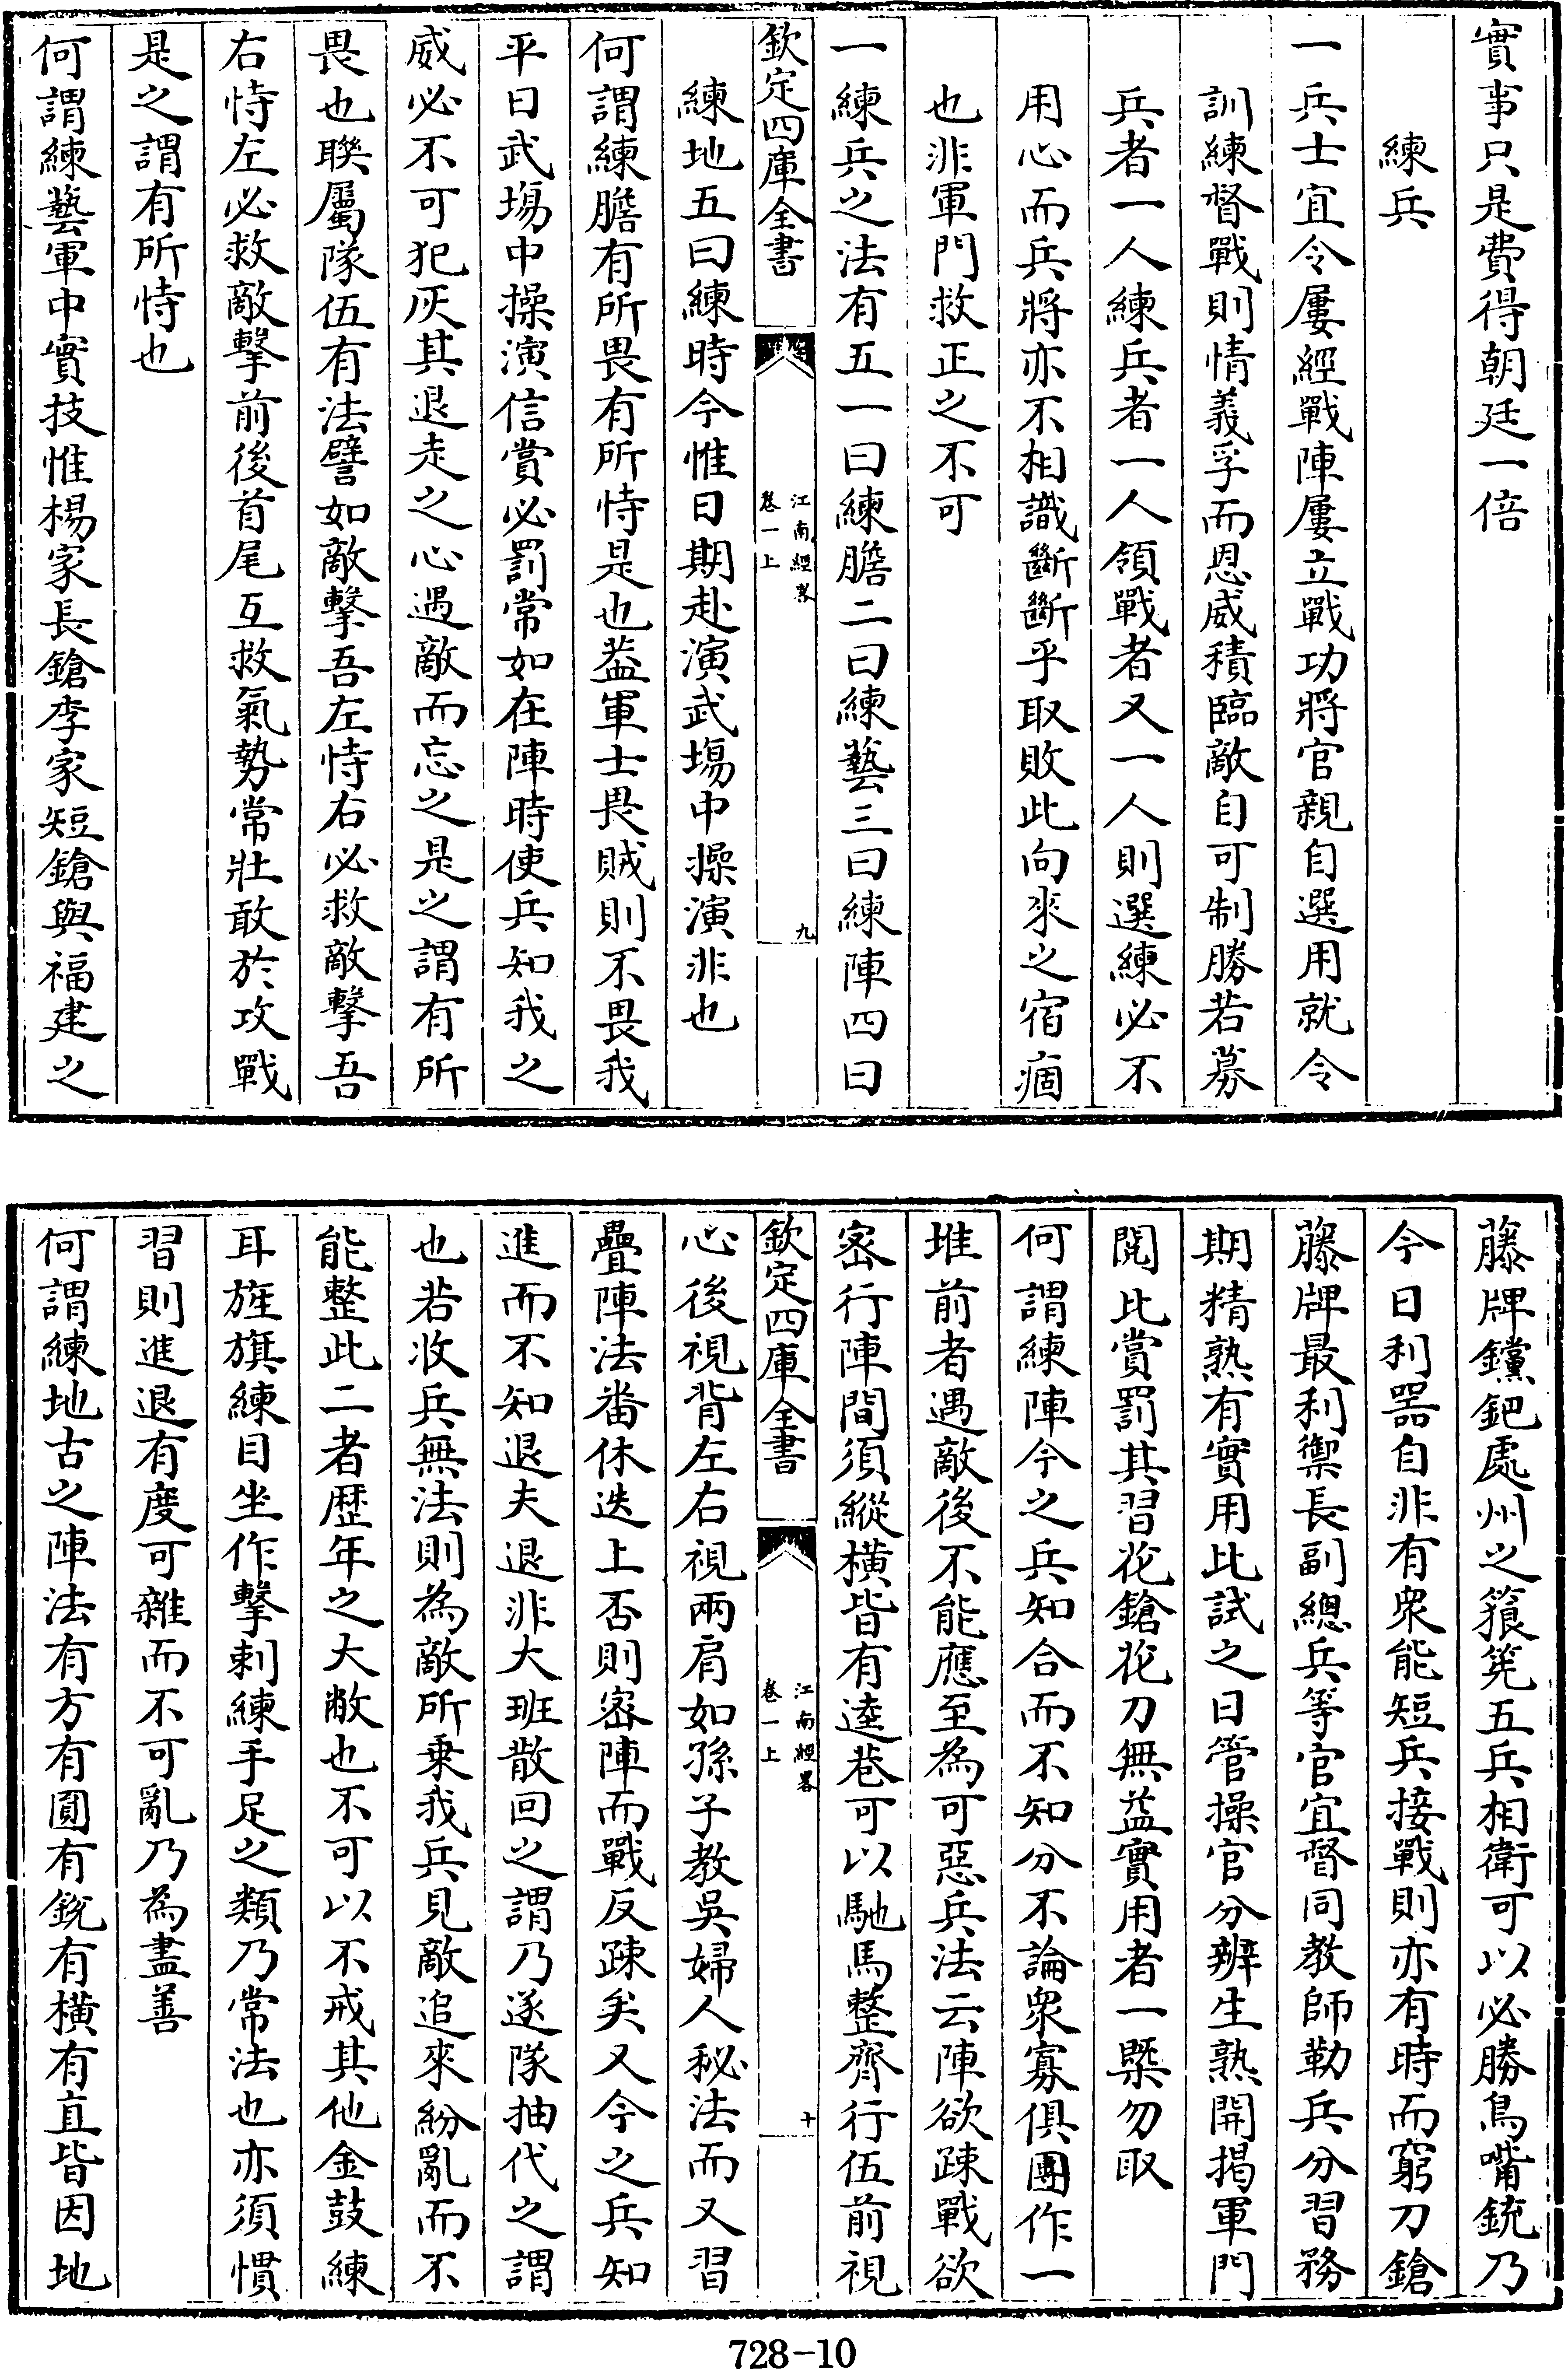 實事只是費得朝廷一倍
練兵
一兵士宜令屢經戰陣屢立戰功將官親自選用就令
訓練督戰則情義孚而恩威積臨敵自可制勝若募
兵者一人練兵者一人領戰者又一人則選練必不
用心而兵將亦不相識斷斷乎取敗此向來之宿痼
也非軍門救正之不可
一練兵之法有五一曰練膽二曰練藝三曰練陣四曰
欽定四庫全書
江南經畧
卷一上
九
練地五曰練時今惟日期赴演武場中操演非也
何謂練膽有所畏有所恃是也葢軍士畏賊則不畏我
平日武場中操演信賞必罰常如在陣時使兵知我之
威必不可犯灰其退走之心遇敵而忘之是之謂有所
畏也聯屬隊伍有法譬如敵擊吾左恃右必救敵擊吾
右恃左必救敵擊前後首尾互救氣勢常壯敢於攻戰
是之謂有所恃也
何謂練藝軍中實技惟楊家長鎗李家短鎗與福建之
藤牌钂鈀處州之筤筅五兵相衛可以必勝鳥嘴銃乃
今日利器自非有衆能短兵接戰則亦有時而窮刀鎗
藤牌最利禦長副總兵等官宜督同教師勒兵分習務
期精熟有實用比試之日管操官分辨生熟開揭軍門
閱比賞罰其習花鎗花刀無益實用者一槩勿取
何謂練陣今之兵知合而不知分不論衆寡俱團作一
堆前者遇敵後不能應至為可惡兵法云陣欲疎戰欲
宻行陣間須縱橫皆有逵巷可以馳馬整齊行伍前視
欽定四庫全書
江南經畧
卷一上
十
心後視背左右視兩肩如孫子教吳婦人秘法而又習
疊陣法畨休迭上否則宻陣而戰反疎矣又今之兵知
進而不知退夫退非大班散回之謂乃逐隊抽代之謂
也若收兵無法則為敵所乘我兵見敵追來紛亂而不
能整此二者歴年之大敝也不可以不戒其他金鼓練
耳旌旗練目坐作擊刺練手足之類乃常法也亦須慣
習則進退有度可雜而不可亂乃為盡善
何謂練地古之陣法有方有圓有銳有橫有直皆因地
728-10